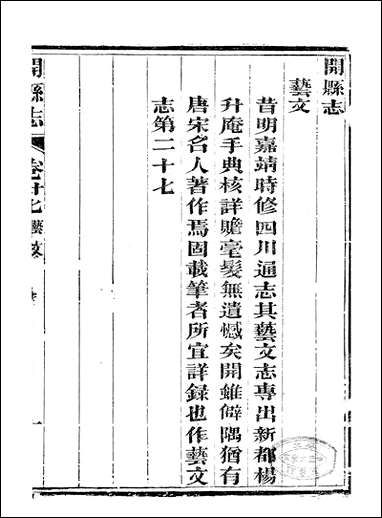 開縣志
藝文
昔明嘉靖時修四川通志其藝文志專出新都楊
升庵手典核詳贍毫髮無遺憾矣開雖僻隅猶有
唐宋名人著作焉固載筆者所宜詳録也作藝文
志第二十七
開縣志
卷廿七
藝文
一